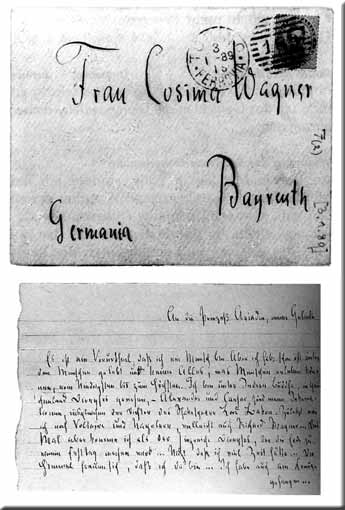 3
1 - 89
FERROVIA
Frau Cosima Wagner
Bayreuth
Germania
[3.1.89]
An die Prinzeß Ariadne, meine Geliebte.
Es ist ein Vorurtheil, daß ich ein Mensch bin. Aber ich habe schon oft unter
den Menschen gelebt und kenne Alles, was Menschen erleben kön-
nen, vom Niedrigsten bis zum Höchsten. Ich bin unter Indern Buddha, in Grie-
chenland Dionysos gewesen, – Alexander und Caesar sind meine Inkarna-
tionen, insgleichen der Dichter des Shakespeare Lord Bakon. Zuletzt war
ich noch Voltaire und Napoleon, vielleicht auch Richard Wagner... Dies
Mal aber komme ich als der siegreiche Dionysos, der die Erde zu
einem Festtag machen wird... Nicht daß ich viel Zeit hätte... Die
Himmel freuen sich, daß ich da bin... Ich habe auch am Kreuze
gehangen...